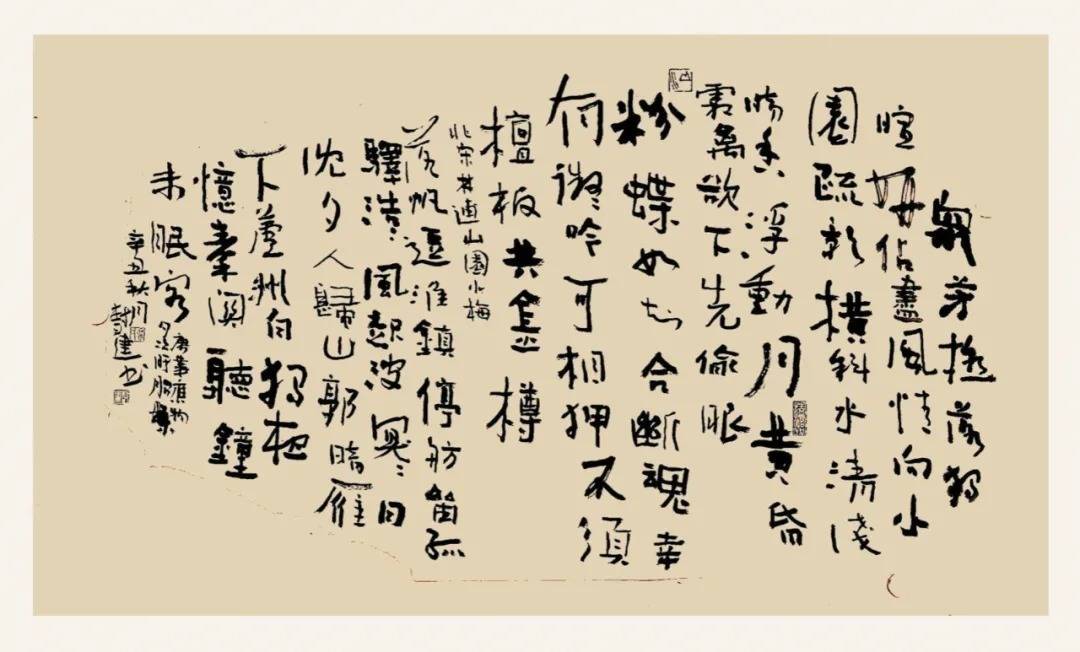 衆芳摇落獨
暄妍佔盡風情向小
園疏影横斜水清淺
暗香浮動月黄昏
霜禽欲下先偷眼
粉蝶如知合斷魂幸
有微吟可相狎不須
檀板共金樽
北宋林逋山園小梅
落帆逗淮鎮停舫臨孤
驛浩浩風起波冥冥日
沈夕人歸山郭暗雁
下蘆州白獨夜
憶秦關聽鐘
未眠客
唐韋應物
夕次盱眙縣
辛丑秋月
封建书